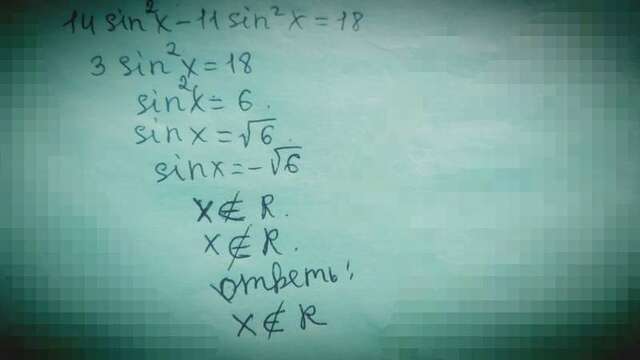 14 sin²x - 11 sin²x = 18
3 sin²x = 18
sin²x = 6.
sin x = √6.
sin x = -√6
x ∉ R.
x ∉ R.
ответ:
x ∉ R